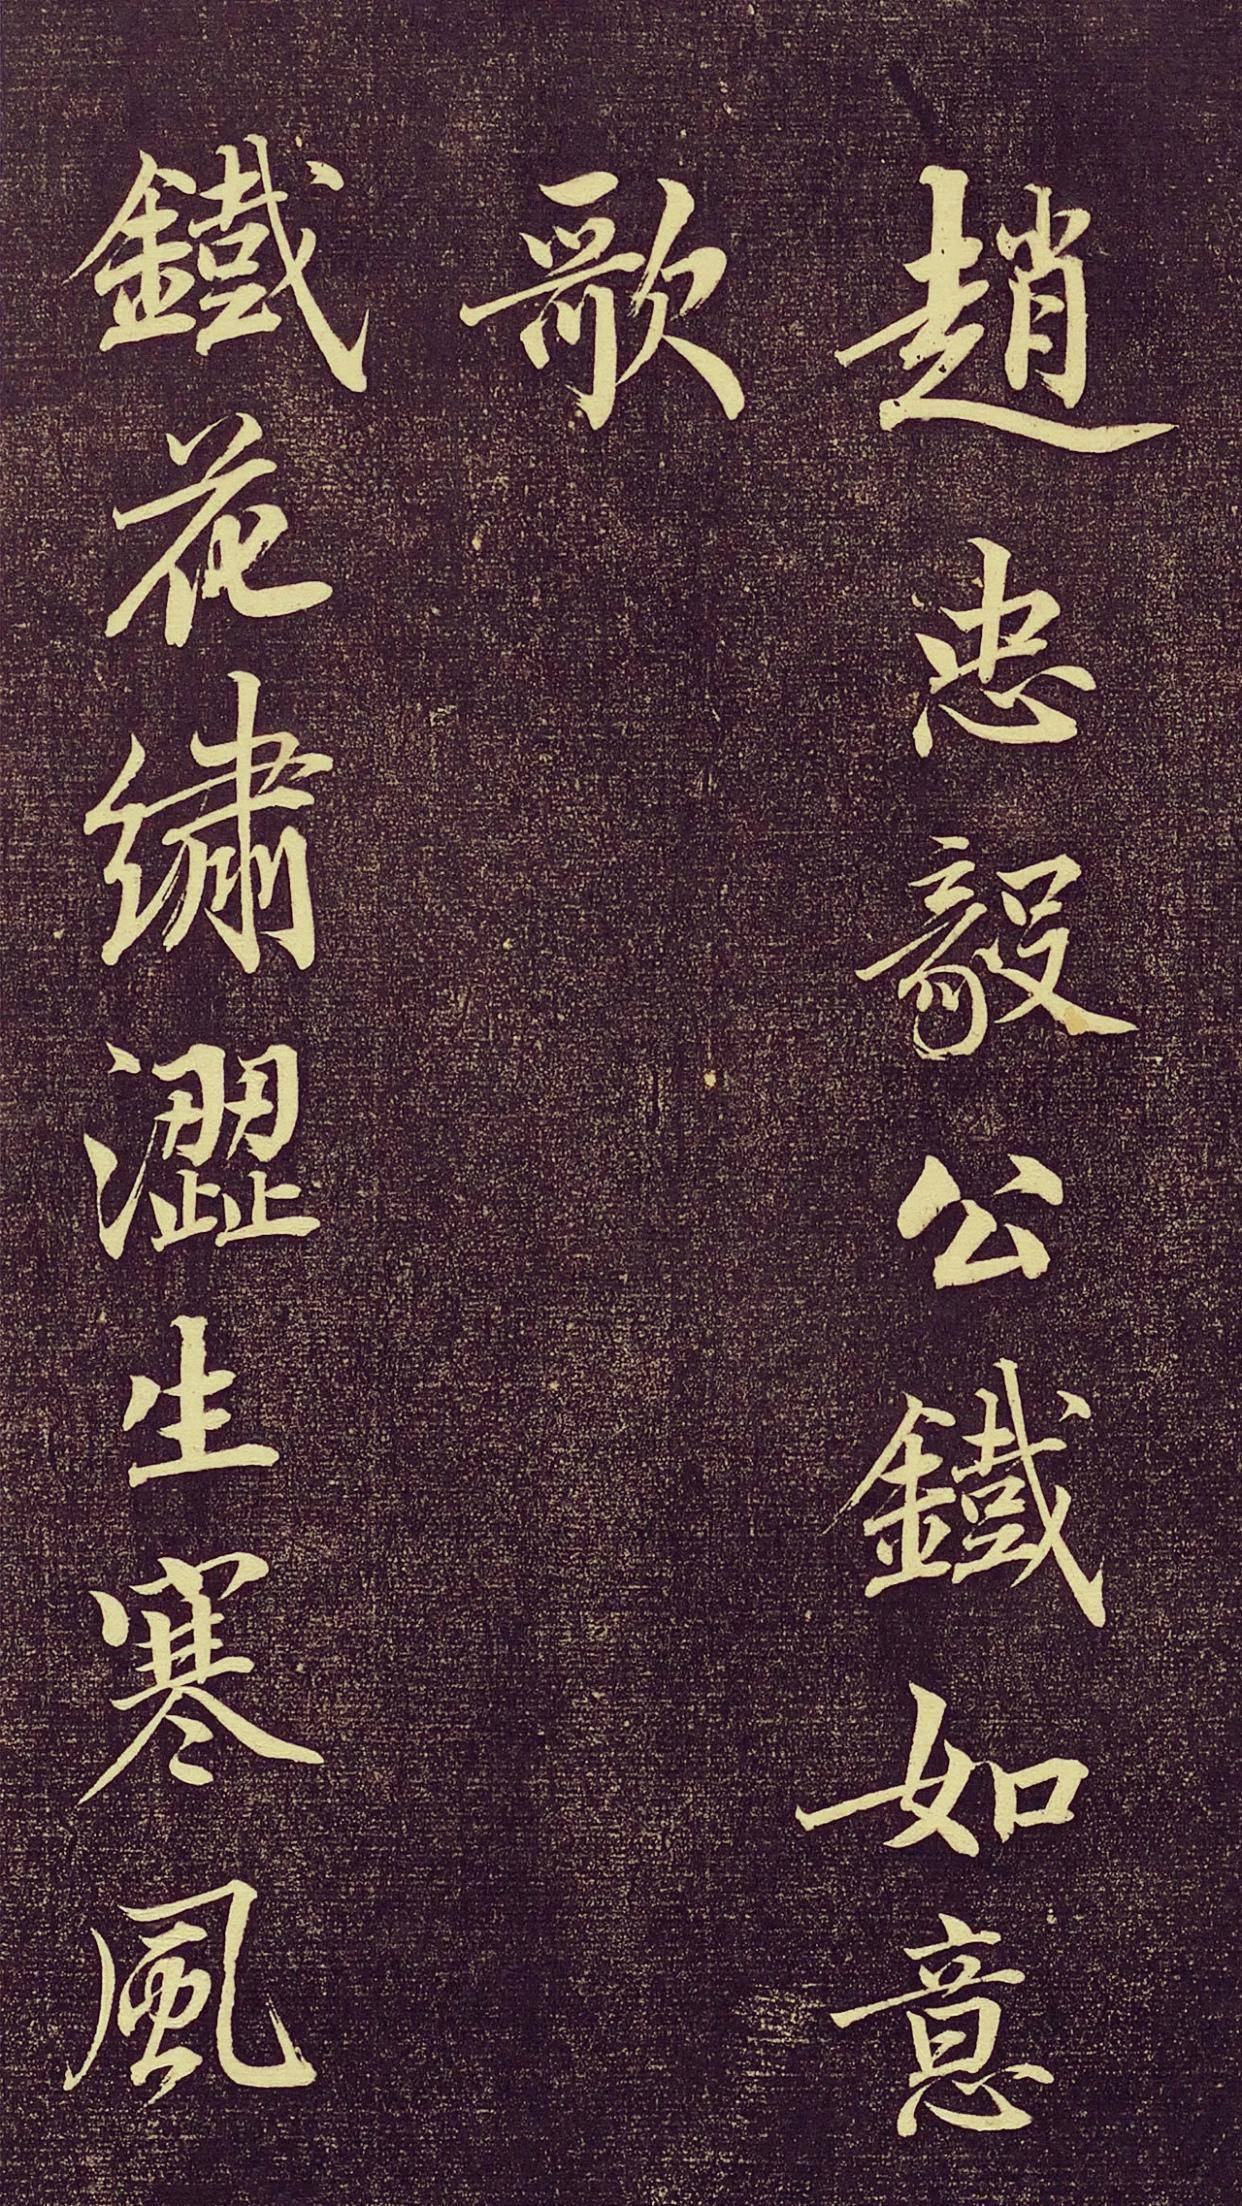 趙忠毅公鐵如意
歌
鐵花繡澀生寒風